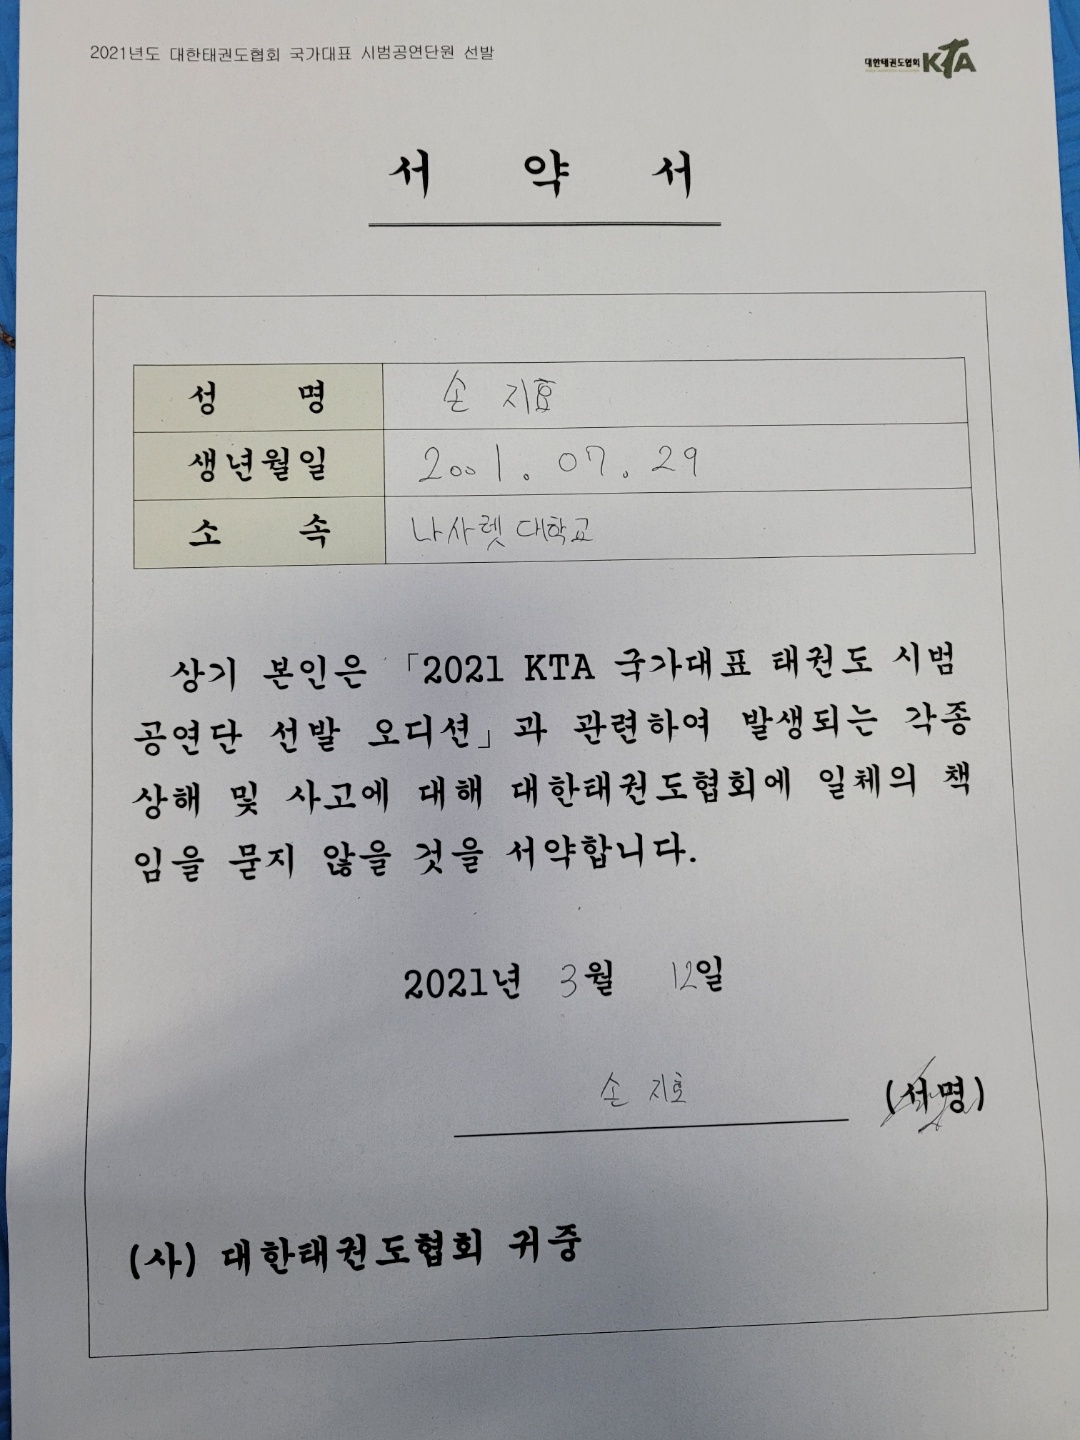 2021년도 대한태권도협회 국가대표 시범공연단원 선발
대한태권도협회 KTA
서 약 서
성 명 손 지효
생년월일 2001. 07. 29
소 속 나사렛 대학교
상기 본인은 「2021 KTA 국가대표 태권도 시범
공연단 선발 오디션」과 관련하여 발생되는 각종
상해 및 사고에 대해 대한태권도협회에 일체의 책
임을 묻지 않을 것을 서약합니다.
2021년 3월 12일
손 지효 (서명)
(사) 대한태권도협회 귀중